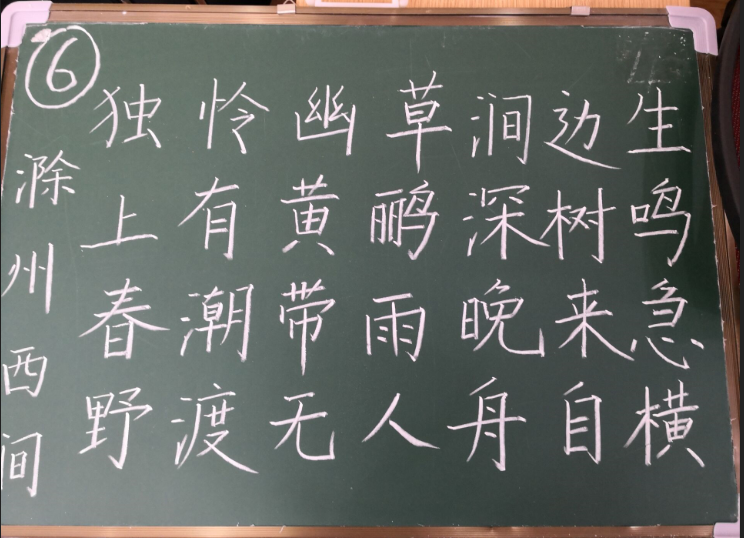 ⑥
滁州西间
独怜幽草涧边生
上有黄鹂深树鸣
春潮带雨晚来急
野渡无人舟自横